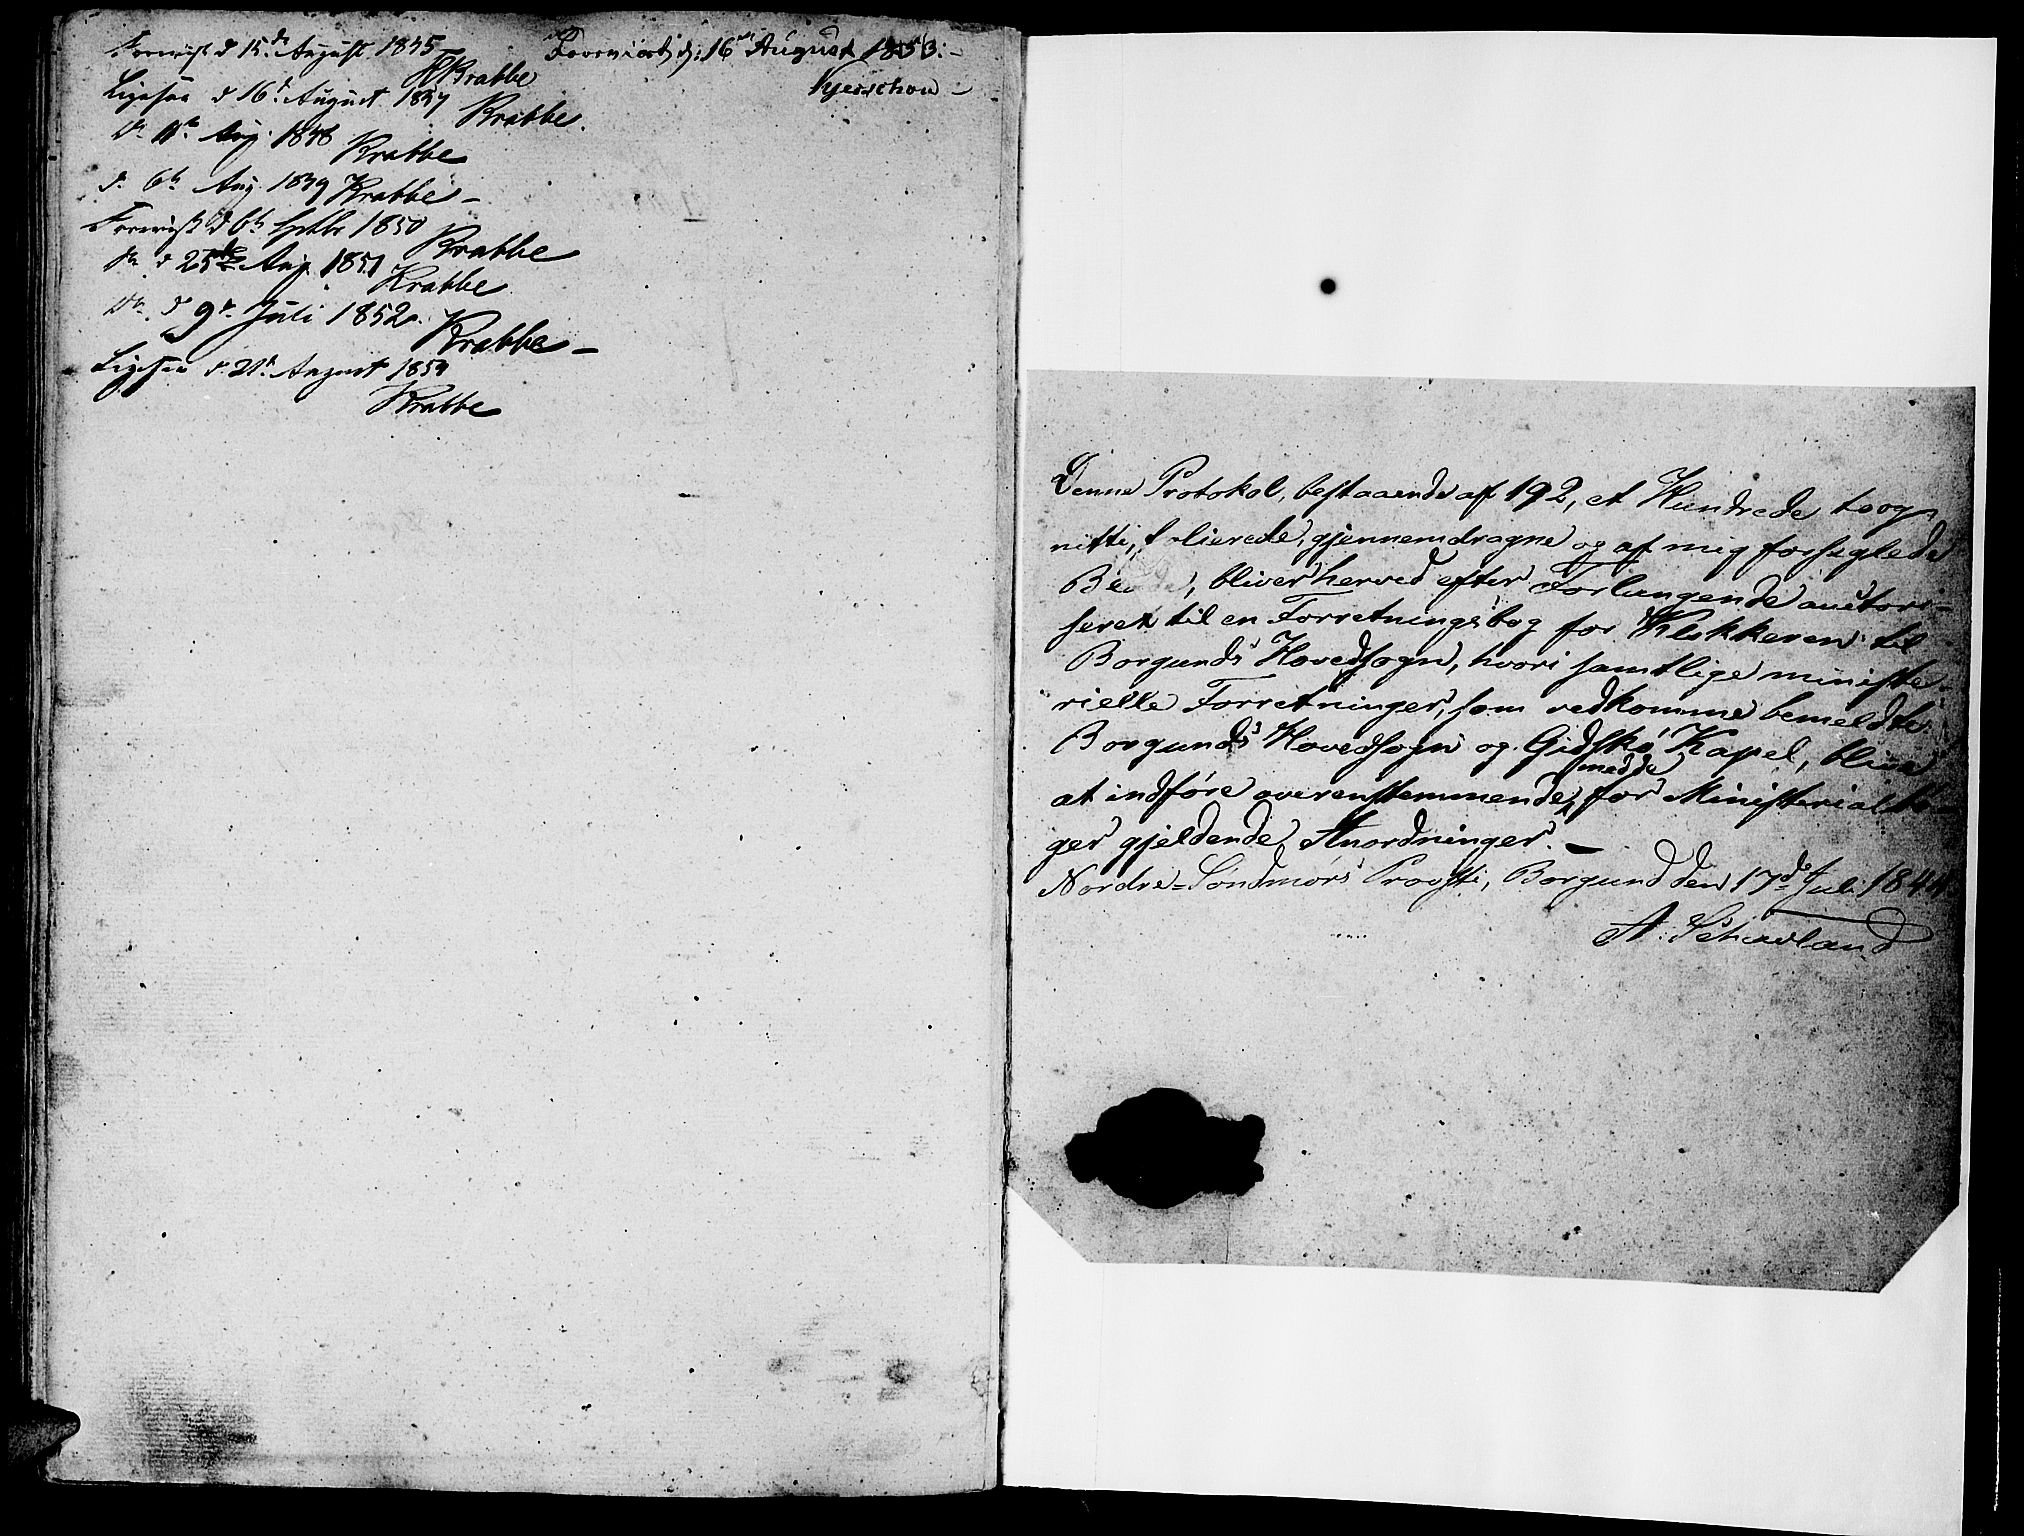 Foreviist d 15de August 1845
KKrabbe
Ligesaa d 16d August 1847
Krabbe.
Do 11te Aug. 1848
Krabbe
d. 6te Aug. 1849 Krabbe –
Foreviist d 6te Septbr 1850
Krabbe
Do d 25de Aug. 1851
Krabbe
Do d 9de Juli 1852.
Krabbe –
Ligesaa d. 21d August 1854
Krabbe
Foreviist d: 16de August 1853. –
Kjerschou –
Denne Protokol, bestaaende af 192, et Hundrede to og
nitti, folierede, gjennemdragne og af mig forseglede
Blade, bliver herved efter Forlangende auctori-
seret til en Forretningsbog for Klokkeren til
Borgunds Hovedsogn, hvori samtlige ministe-
rielle Forretninger, som vedkomme bemeldte
Borgunds Hovedsogn og Gidskø Kapel, blive
at indføre overensstemmende medde for Ministerialbø-
ger gjeldende Anordninger. –
Nordre-Søndmørs Provsti, Borgund den 17de Juli 1844